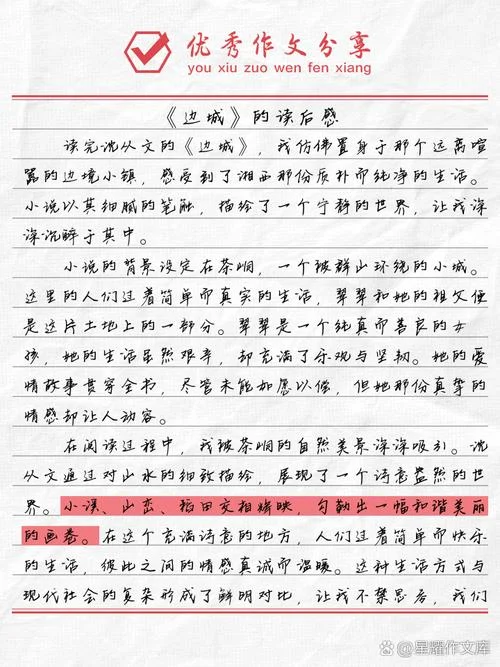 优秀作文分享
you xiu zuo wen fen xiang
《边城》的读后感
读完沈从文的《边城》，我仿佛置身于那个远离喧
嚣的边境小镇，感受到了湘西那份质朴而纯净的生活。
小说以其细腻的笔触，描绘了一个宁静的世界，让我深
深沉醉于其中。
小说的背景设定在茶峒，一个被群山环绕的小城。
这里的人们过着简单而真实的生活，翠翠和她的祖父便
是这片土地上的一部分。翠翠是一个纯真而善良的女
孩，她的生活虽然艰辛，却充满了乐观与坚韧。她的爱
情故事贯穿全书，尽管未能如愿以偿，但她那份真挚的
情感却让人动容。
在阅读过程中，我被茶峒的自然美景深深吸引。沈
从文通过对山水的细致描绘，展现了一个诗意盎然的世
界。小溪、山峦、稻田交相辉映，勾勒出一幅和谐美丽
的画卷。在这个充满诗意的地方，人们过着简单而快乐
的生活，彼此之间的情感真诚而温暖。这种生活方式与
现代社会的复杂形成了鲜明对比，让我不禁思考，我们
星耀作文库